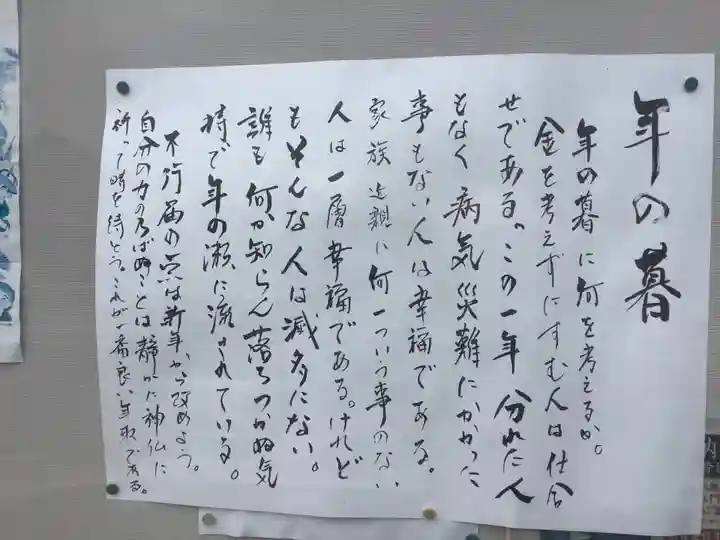 年の暮
年の暮に何を考えるか。
金を考えずにすむ人は仕合
せである。この一年 分れた人
もなく病気災難にかかった
事もない人は幸福である。
家族近親に何一つ憂う事のない
人は一層幸福である。けれど
もそんな人は滅多にない。
誰も何か知らん落ちつかぬ気
持で年の瀬に流されている。
不行届の点は新年から改めよう。
自分の力の及ばぬことは静かに神仏に
祈って時を待とう。これが一番良い年取である。